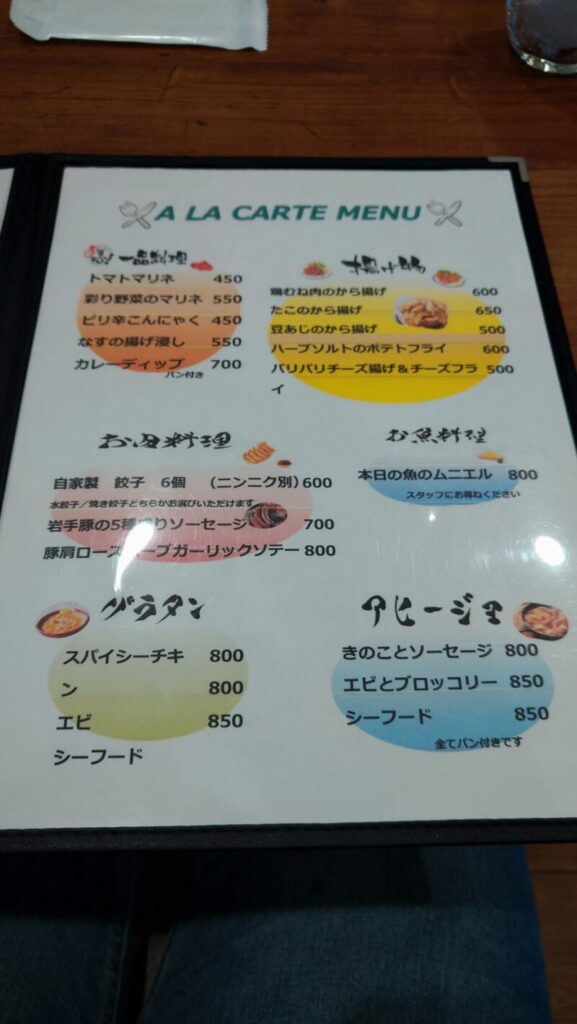 A LA CARTE MENU
一品料理
トマトマリネ 450
彩り野菜のマリネ 550
ピリ辛こんにゃく 450
なすの揚げ浸し 550
カレーディップ 700
パン付き
揚げ物
鶏むね肉のから揚げ 600
たこのから揚げ 650
豆あじのから揚げ 500
ハーブソルトのポテトフライ 600
パリパリチーズ揚げ＆チーズフラ 500
イ
お肉料理
自家製 餃子 6個 （ニンニク別）600
水餃子／焼き餃子どちらかお選びいただけます
岩手豚の5種盛りソーセージ 700
豚肩ロースハーブガーリックソテー 800
お魚料理
本日の魚のムニエル 800
スタッフにお尋ねください
グラタン
スパイシーチキ 800
ン 800
エビ 850
シーフード
アヒージョ
きのことソーセージ 800
エビとブロッコリー 850
シーフード 850
全てパン付きです